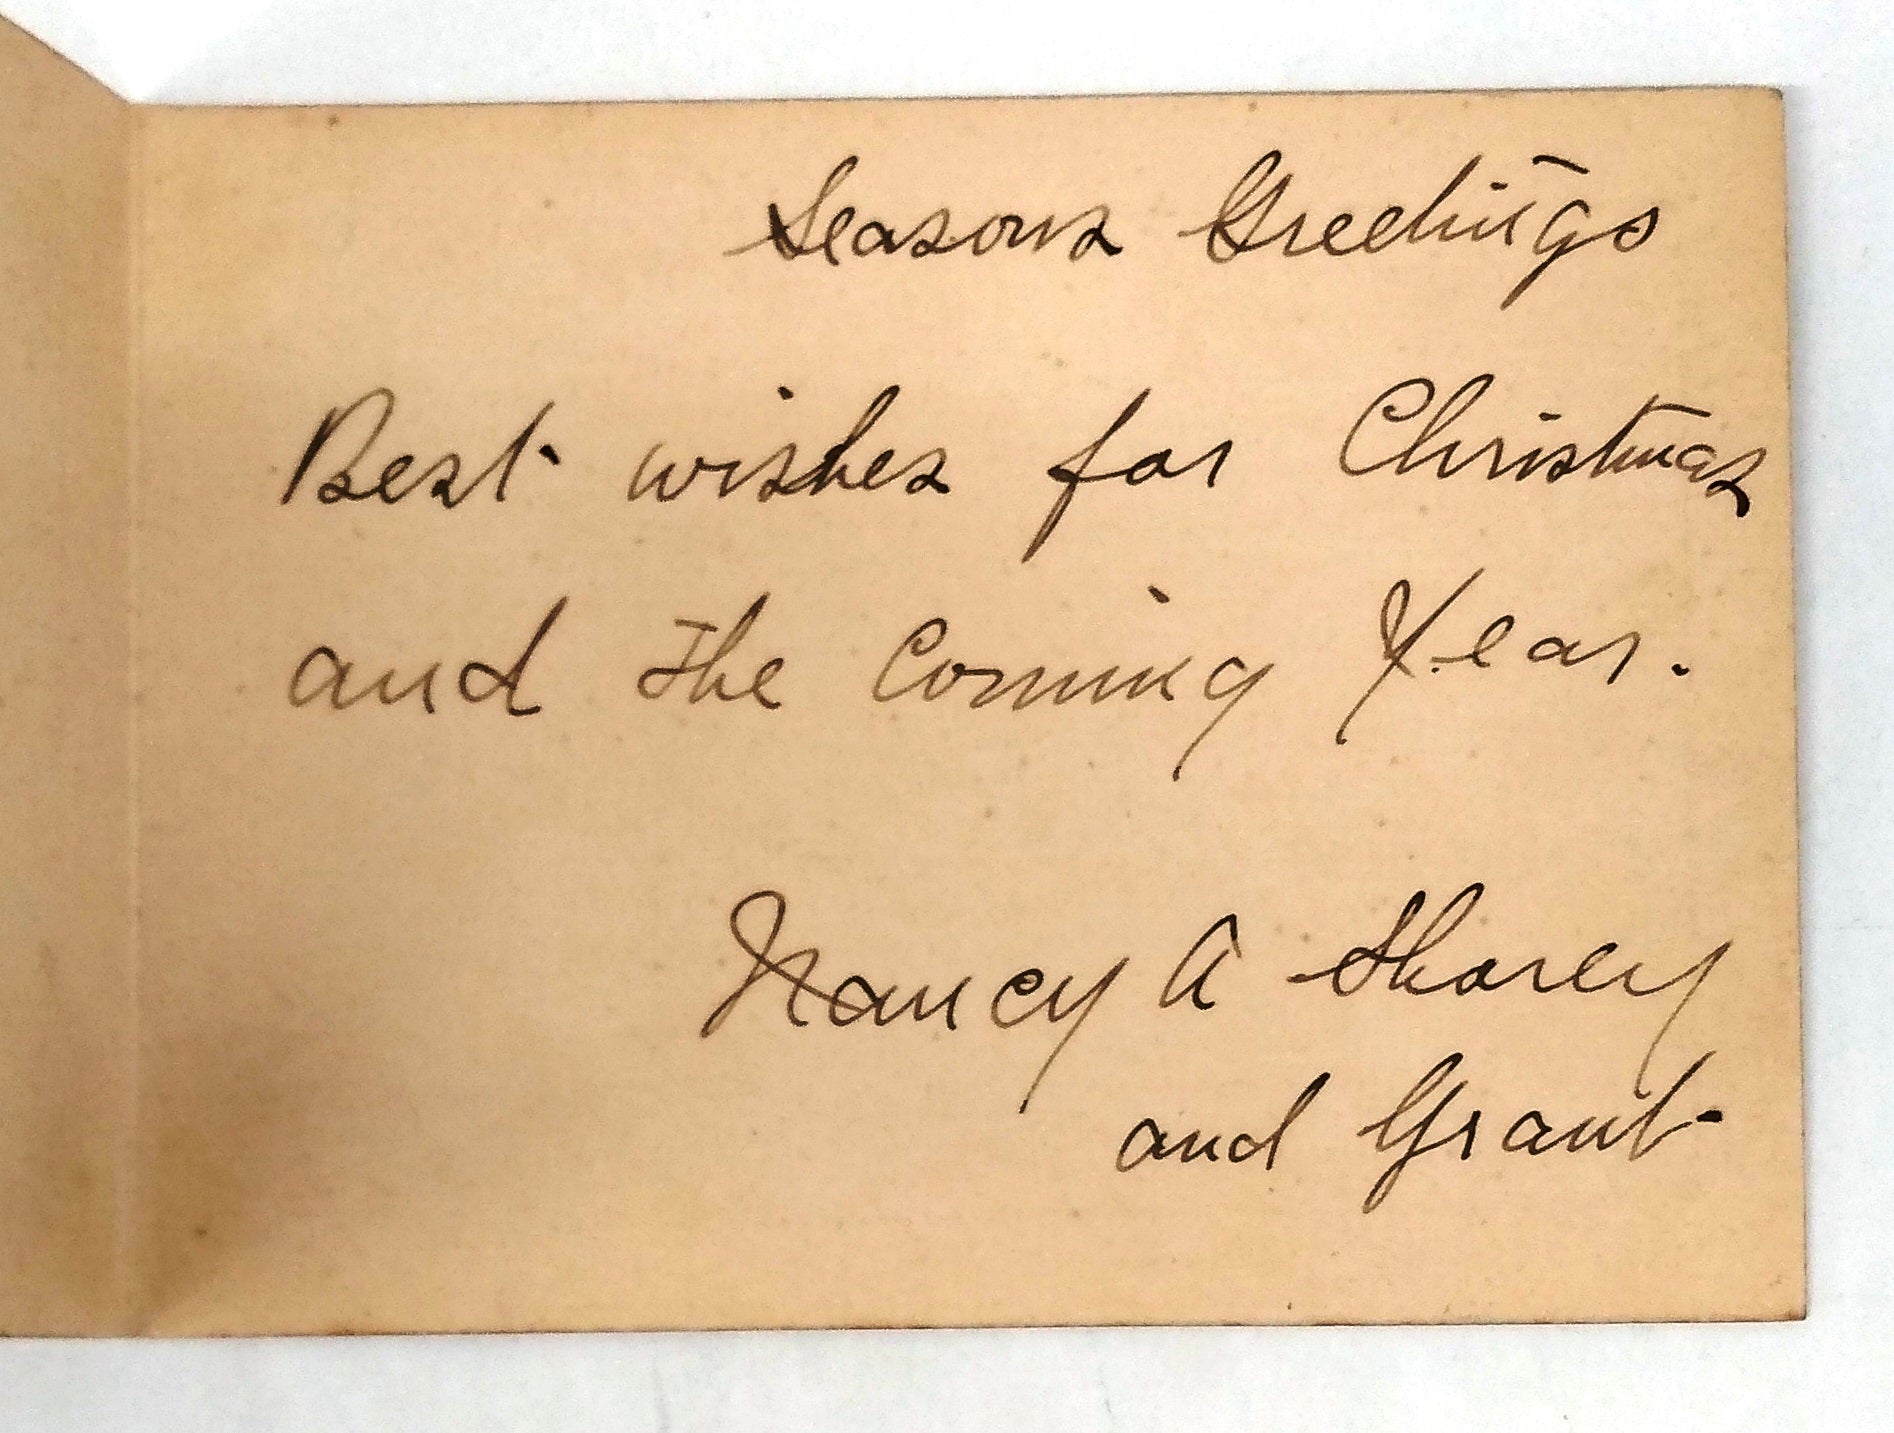 Seasons Greetings
Best wishes for Christmas
and the Coming Year.
Nancy A Shorey
and Grant